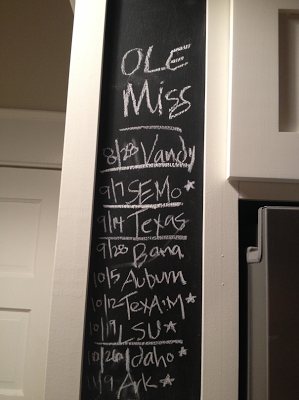 OLE
Miss
8/28 Vandy
9/7 SEMo ★
9/14 Texas
9/28 Bama
10/5 Auburn
10/12 TexA+M ★
10/19 LSU ★
10/26 Idaho ★
11/9 Ark ★